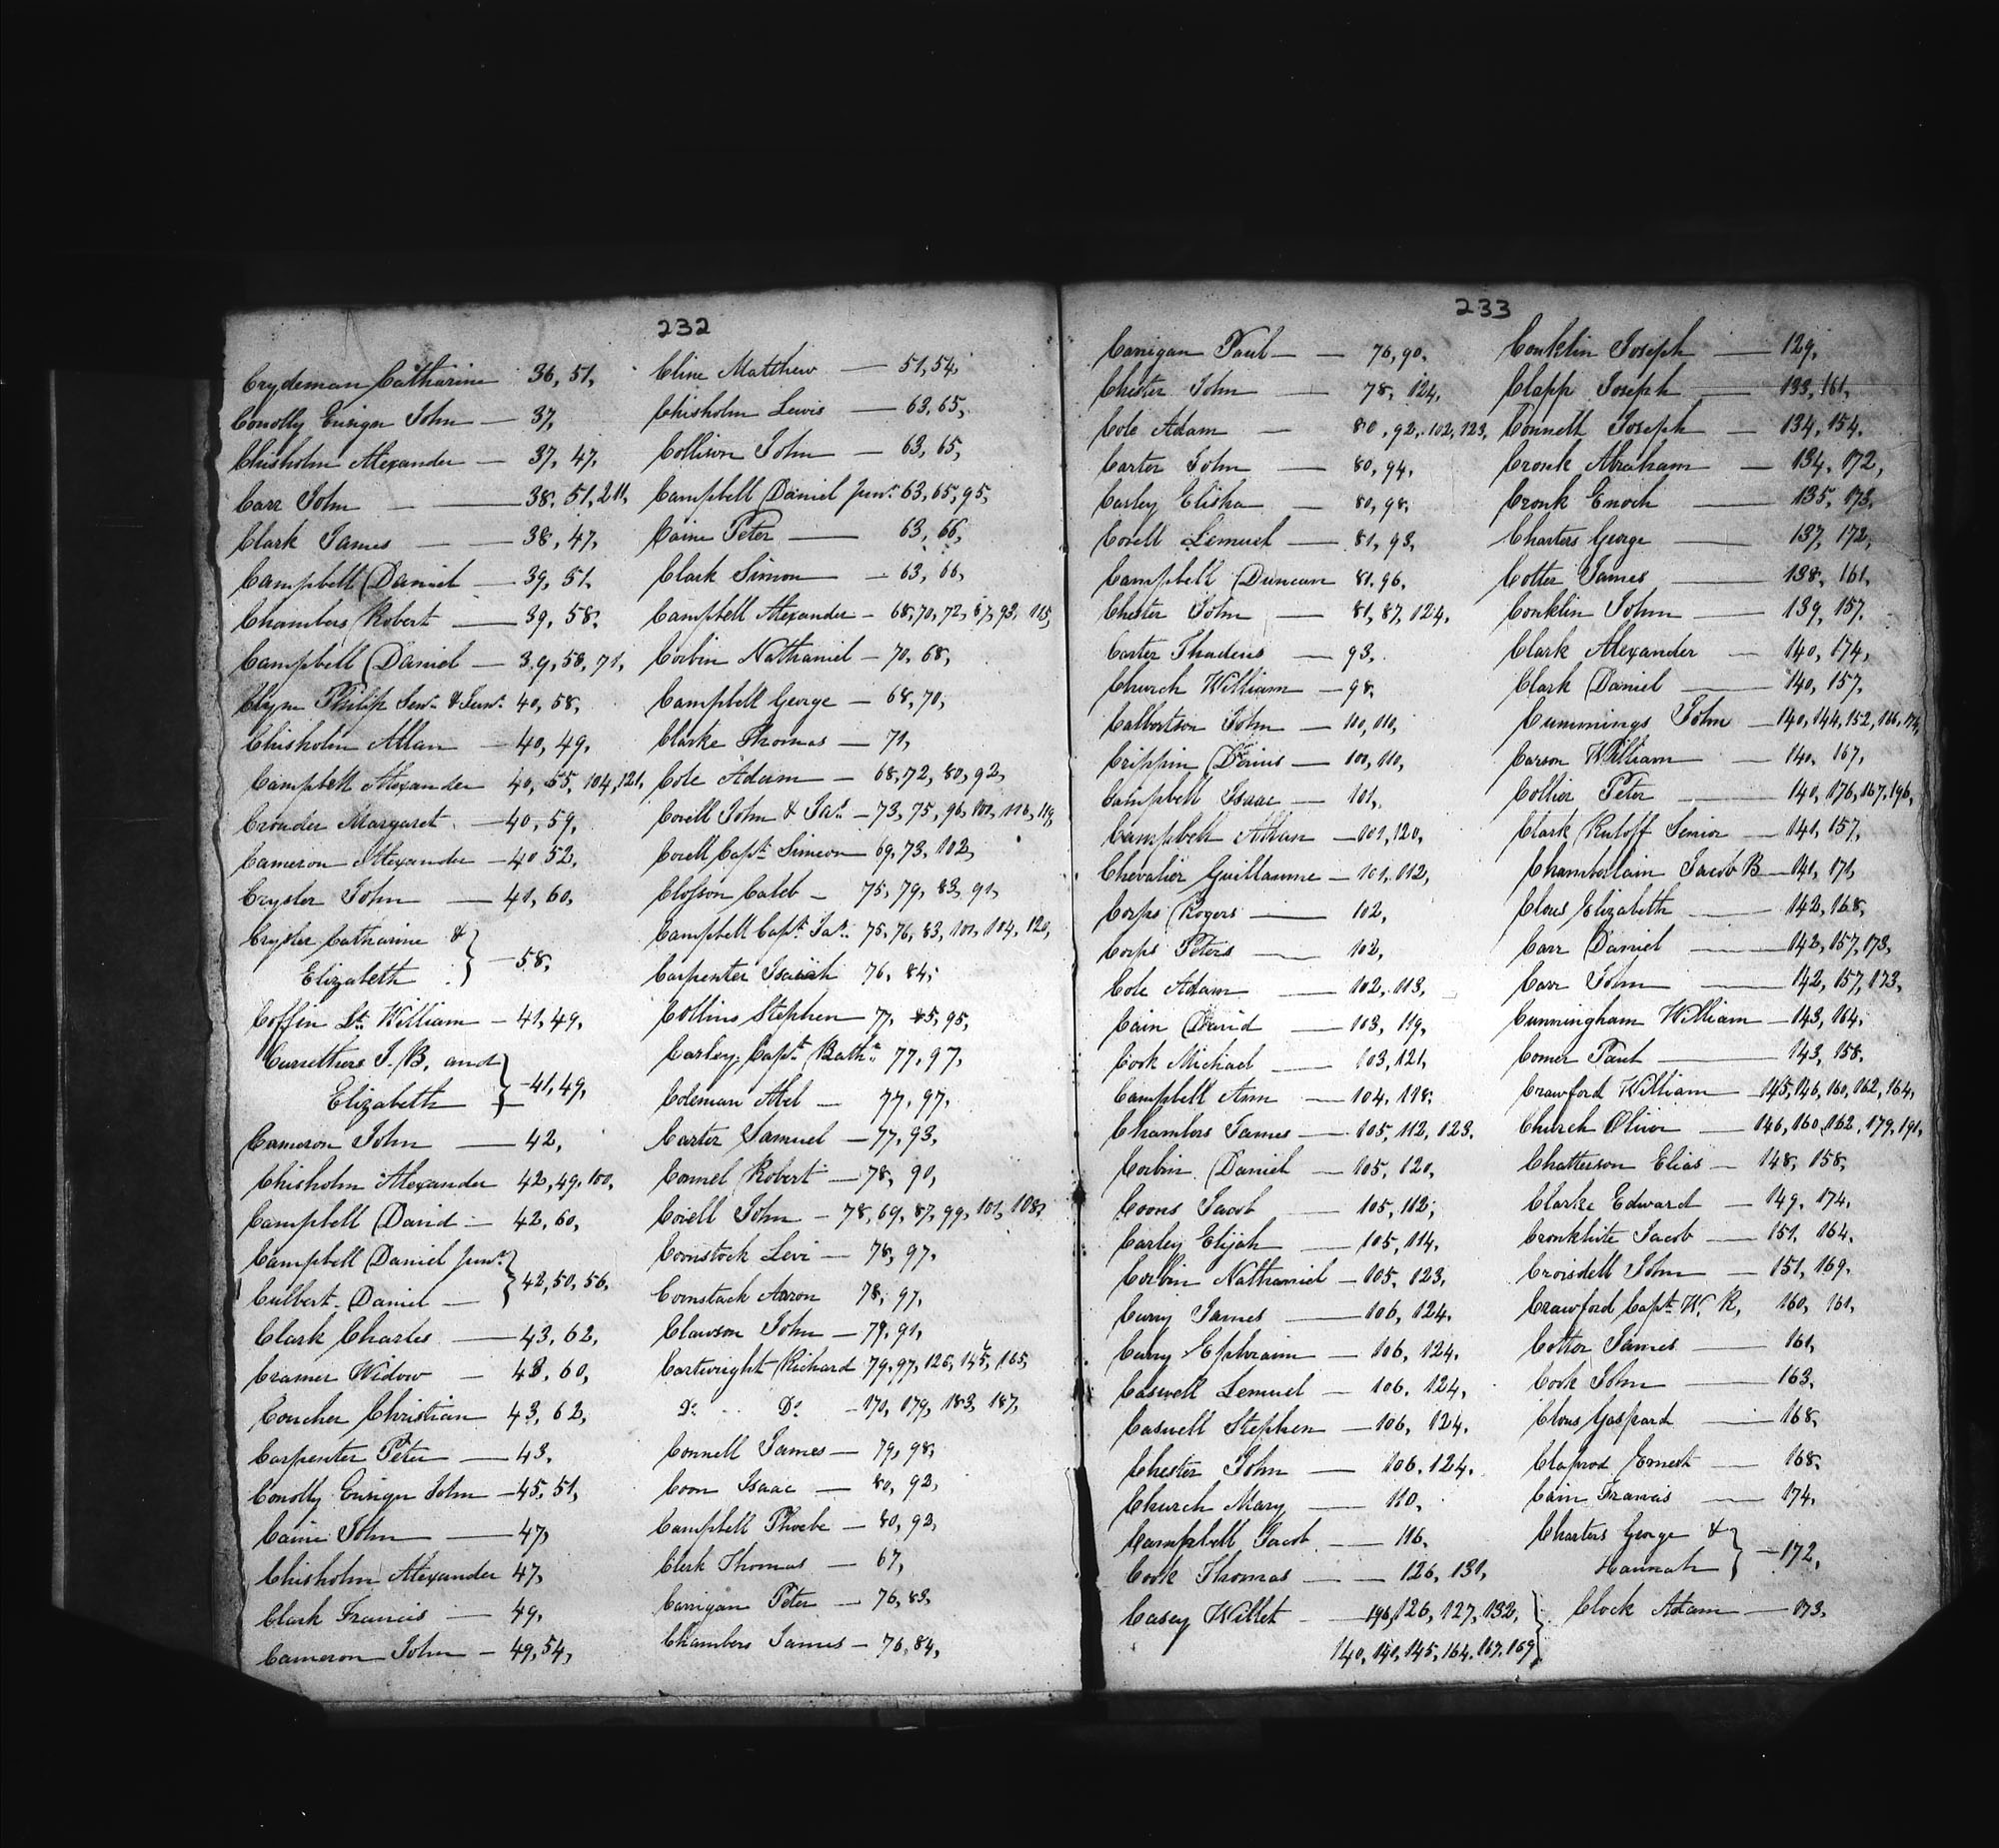 232
Crydeman Catharine 36, 51,
Conolly Ensign John — 37,
Chisholm Alexander — 37, 47,
Carr John — — 38, 51, 211,
Clark James — — 38, 47,
Campbell Daniel — 39, 51,
Chambers Robert — 39, 58,
Campbell Daniel — 39, 58, 71,
Clyne Philip Senr. & Junr. 40, 58,
Chisholm Allan — 40, 49,
Campbell Alexander 40, 55, 104, 121,
Crouder Margaret — 40, 59,
Cameron Alexander — 40, 52,
Crysler John — 41, 60,
Crysler Catharine &
Elizabeth } — 58,
Coffin Lt. William — 41, 49,
Carrethers J. B. and
Elizabeth } — 41, 49,
Cameron John — 42,
Chisholm Alexander 42, 49, 100,
Campbell David — 42, 60,
Campbell Daniel Junr. }
Culbert Daniel — } 42, 50, 56,
Clark Charles — 43, 62,
Cramer Widow — 43, 60,
Coucher Christian 43, 62,
Carpenter Peter — 43,
Conolly Ensign John — 45, 51,
Caine John — 47,
Chisholm Alexander 47,
Clark Francis — 49,
Cameron John — 49, 54,
Cline Matthew — 51, 54,
Chisholm Lewis — 63, 65,
Collison John — 63, 65,
Campbell Daniel Junr. 63, 65, 95,
Caine Peter — 63, 66,
Clark Simon — 63, 66,
Campbell Alexander — 68, 70, 72, 67, 93, 115,
Corbin Nathaniel — 70, 68,
Campbell George — 68, 70,
Clarke Thomas — 71,
Cole Adam — 68, 72, 80, 92,
Covell John & Jas. — 73, 75, 96, 101, 110, 119,
Covell Capt. Simeon — 69, 73, 102,
Closson Caleb — 75, 79, 83, 91,
Campbell Capt. Jas. 75, 76, 83, 101, 104, 120,
Carpenter Isaiah 76, 84,
Collins Stephen — 77, 85, 95,
Carley Capt. Barth. 77, 97,
Coleman Abel — 77, 97,
Carter Samuel — 77, 93,
Connel Robert — 78, 90,
Covell John — 78, 69, 87, 99, 101, 108,
Comstock Levi — 78, 97,
Comstack Aaron 78, 97,
Clawson John — 79, 91,
Cartwright Richard 79, 97, 126, 145, 165,
Do. Do. — 170, 179, 183, 187,
Connell James — 79, 98,
Coon Isaac — 80, 92,
Campbell Phoebe — 80, 92,
Clerk Thomas — 67,
Carrigan Peter — 76, 83,
Chambers James — 76, 84,
233
Carrigan Paul — — 76, 90,
Chester John — 78, 124,
Cole Adam — 80, 92, 102, 123,
Carter John — 80, 94,
Carley Elisha — 80, 98,
Covell Lemuel — 81, 93,
Campbell Duncan 81, 96,
Chester John — 81, 87, 124,
Carter Thadeus — 93,
Church William — 98,
Calbertson John — 100, 110,
Crippin Darius — 100, 110,
Campbell Isaac — 101,
Campbell Allan — 101, 120,
Chevalier Guillaume — 101, 112,
Corps Rogers — 102,
Corps Peters — 102,
Cole Adam — 102, 113,
Cain David — 103, 119,
Cook Michael — 103, 121,
Campbell Ann — 104, 118,
Chambers James — 105, 112, 123,
Corbin Daniel — 105, 120,
Coons Jacob — 105, 112,
Carley Elijah — 105, 114,
Corbin Nathaniel — 105, 123,
Curry James — 106, 124,
Curry Ephraim — 106, 124,
Caswell Lemuel — 106, 124,
Caswell Stephen — 106, 124,
Chester John — 106, 124,
Church Mary — 110,
Campbell Jacob — 116,
Cook Thomas — — 126, 131,
Casey Willet — 196, 126, 127, 132,
140, 140, 145, 164, 167, 169 }
Conklin Joseph — 129,
Clapp Joseph — 133, 161,
Connell Joseph — 134, 154,
Cronk Abraham — 134, 172,
Cronk Enoch — 135, 173,
Charters George — 137, 172,
Cotter James — 138, 161,
Conklin John — 139, 157,
Clark Alexander — 140, 174,
Clark Daniel — 140, 157,
Cummings John — 140, 144, 152, 166, 174,
Carson William — 140, 167,
Collier Peter — 140, 176, 167, 196,
Clark Ruloff Senior — 141, 157,
Chamberlain Jacob B — 141, 171,
Clous Elizabeth — 142, 168,
Carr Daniel — 142, 157, 173,
Carr John — 142, 157, 173,
Cunningham William — 143, 164,
Comer Paul — 143, 158,
Crawford William — 145, 146, 160, 162, 164,
Church Oliver — 146, 160, 162, 179, 191,
Chatterson Elias — 148, 158,
Clarke Edward — 149, 174,
Cronkhite Jacob — 151, 164,
Croisdell John — 151, 169,
Crawford Capt. W. R. 160, 161,
Cotter James — 161,
Cook John — 163,
Clous Gaspard — 168,
Claprod Ernest — 168,
Cain Francis — 174,
Charters George &
Hannah } — 172,
Clock Adam — 173,